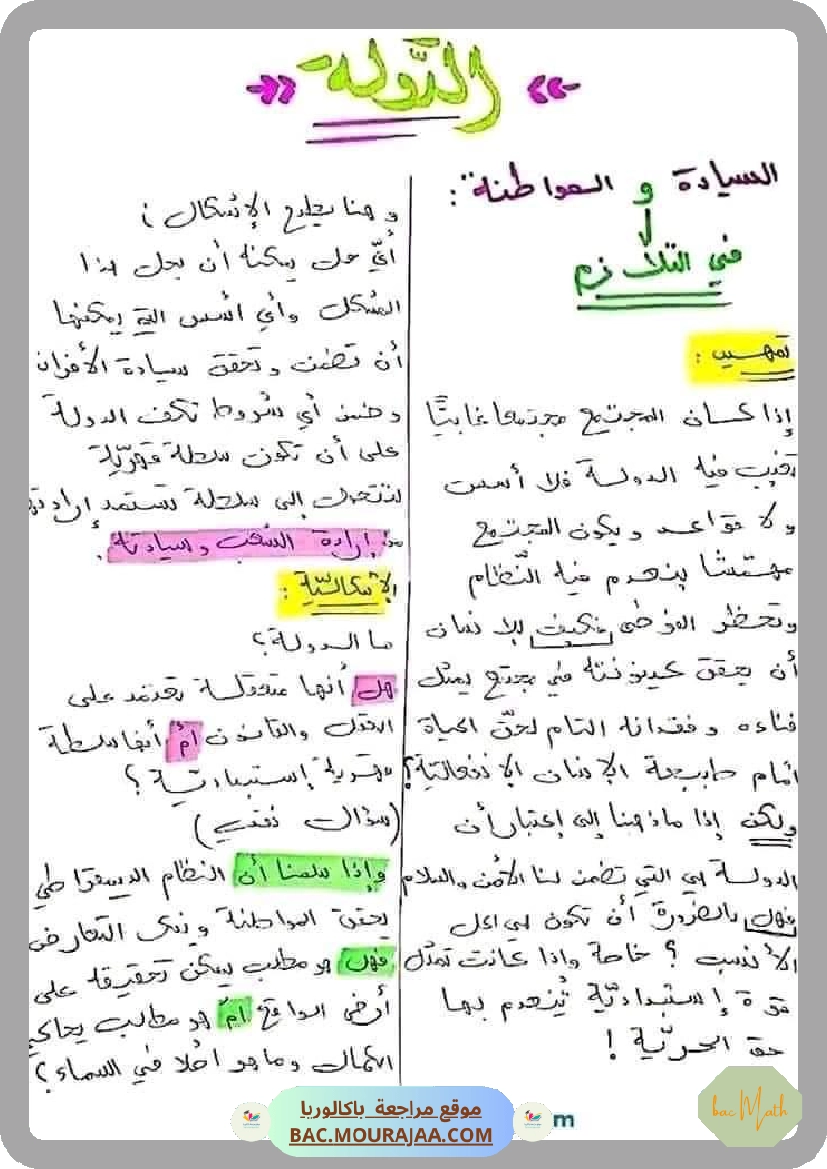 الدَّولة
السيادة و المواطنة:
في التلازم
تمهيد:
إذا كان المجتمع مجتمعا غابيًّا
تغيب فيه الدولة فلا أسس
ولا قواعد ويكون المجتمع
مهمّشا ينعدم فيه النّظام
وتحظر الفوضى فكيف للإنسان
أن يحقق كينونته في مجتمع يمثل
فناءه وفقدانه التام لحقّ الحياة
أمام طبيعة الإنسان الإنفعالية؟
ولكن إذا ماذهبنا إلى إعتبار أن
الدولة هي التي تضمن لنا الأمن والسلام
فهل بالضرورة أن تكون هي الحل
الأنسب؟ خاصة وإذا كانت تمثّل
قوة إستبداديّة يُنعدم بها
حق الحريّة!
وهنا يطرح الإشكال:
أيّ حل يمكنه أن يحل هذا
المشكل وأي أسس التي يمكنها
أن تضمن وتحقق سيادة الأفراد
وضمن أي شروط تكف الدولة
على أن تكون سلطة قهريّة
لتتحول إلى سلطة تستمد إرادتها
من إرادة الشعب وسيادته.
الإشكاليّة:
ما الدولة؟
هل أنها متعقلة تعتمد على
العقل والقانون أم أنها سلطة
قهرية إستبدادية؟
(سؤال نقدي)
وإذا سلمنا أن النظام الديمقراطي
يحقق المواطنة ويفك التعارض
فهل هو مطلب يمكن تحقيقه على
أرض الواقع أم هو مطلب يحاكي
الكمال وما هو إلا في السماء؟
موقع مراجعة باكالوريا
BAC.MOURAJAA.COM
m
bac Math